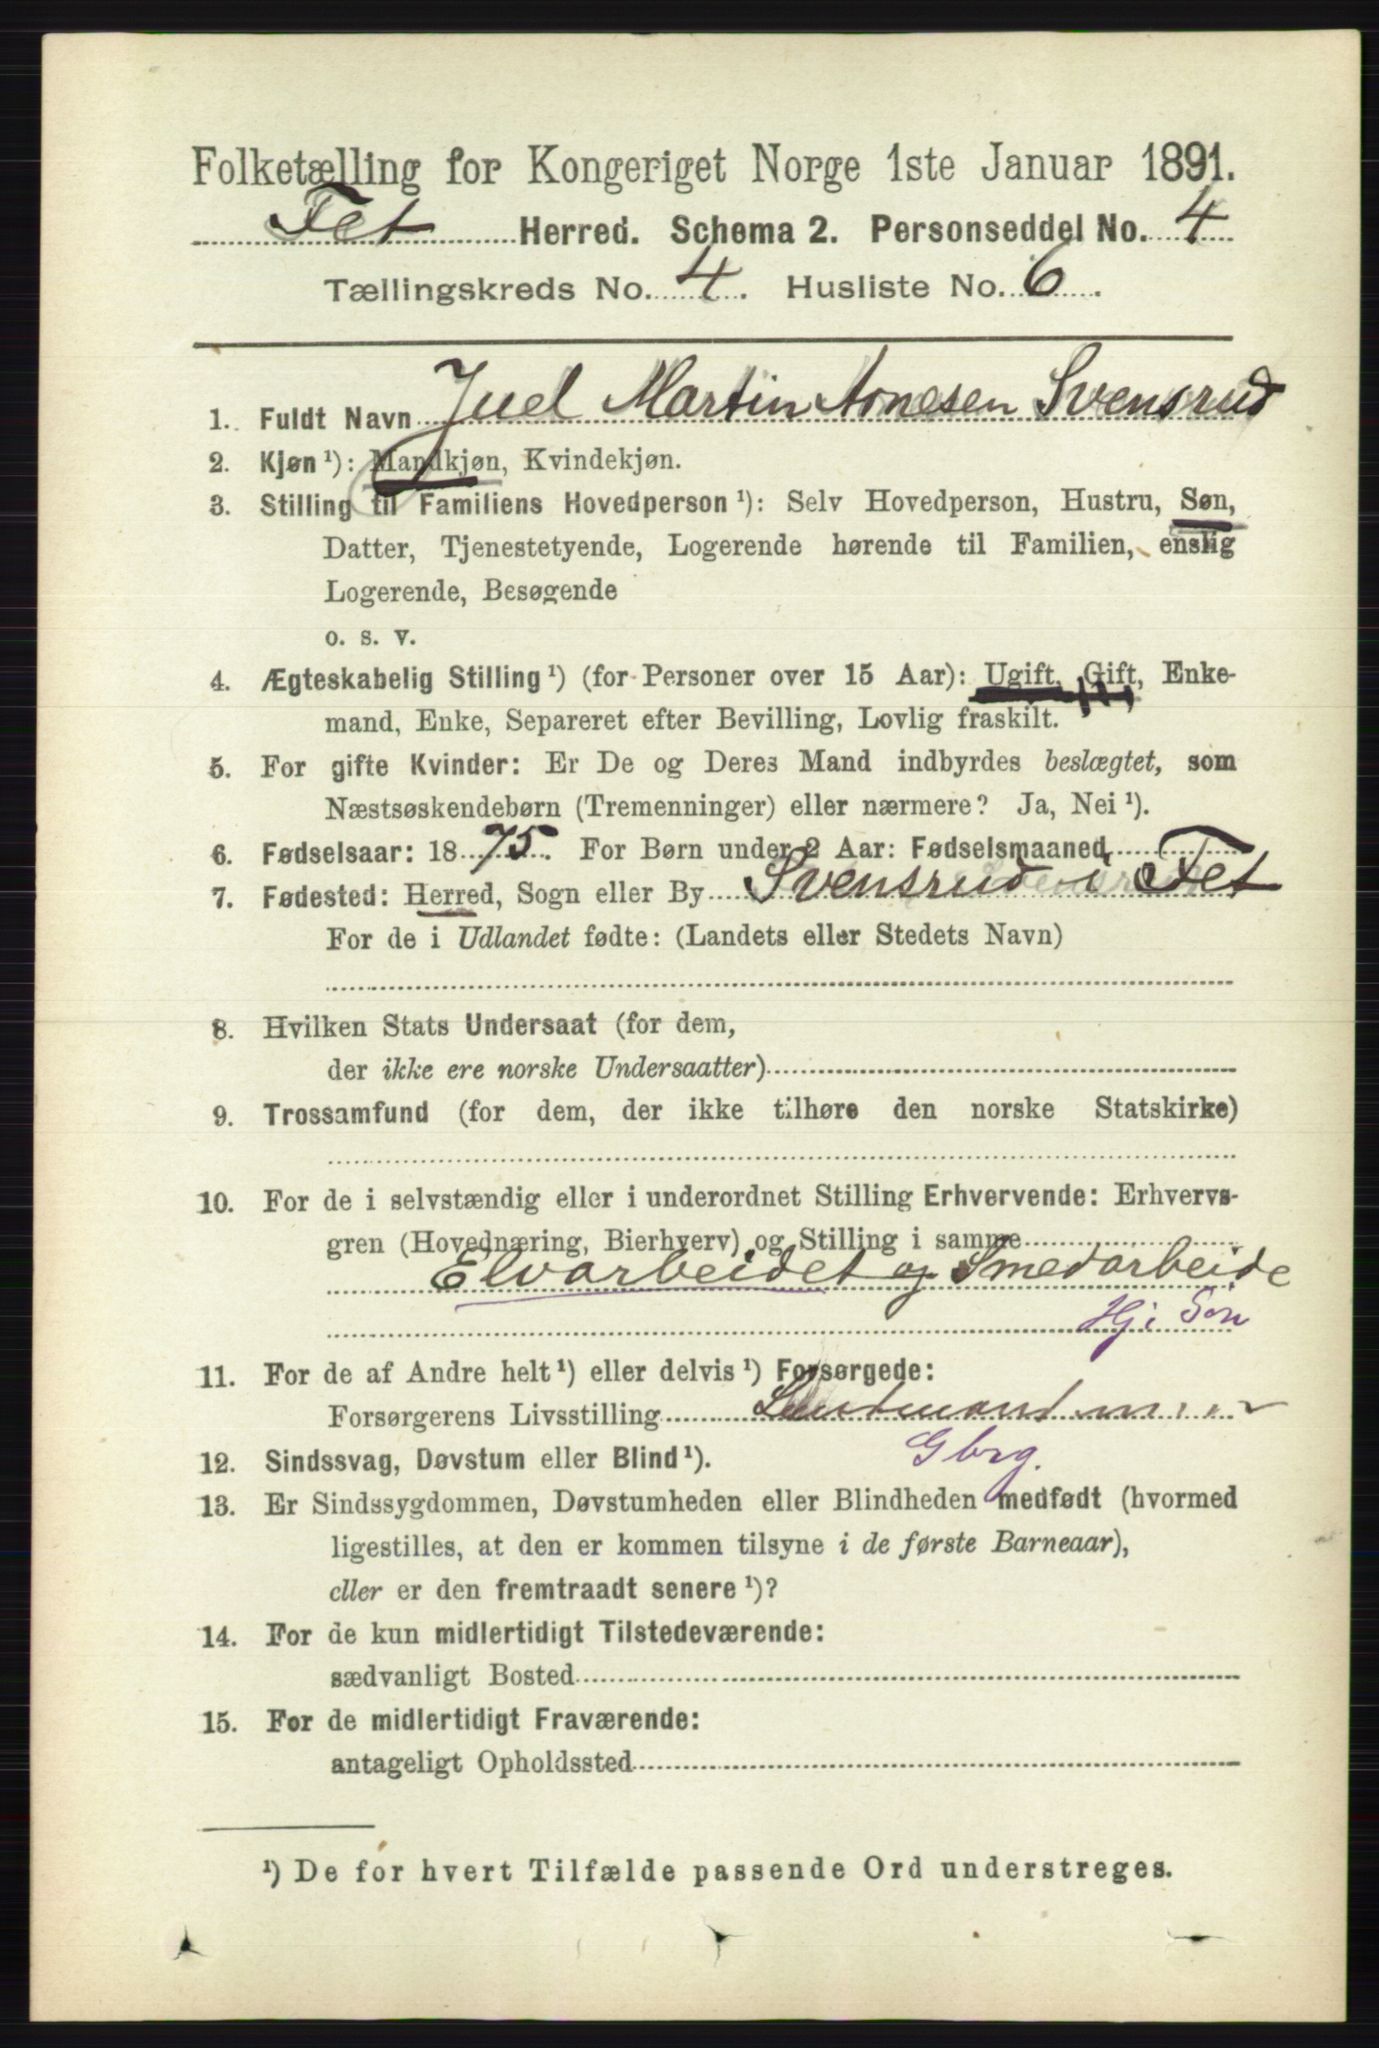 Folketælling for Kongeriget Norge 1ste Januar 1891.
Fet Herred. Schema 2. Personseddel No. 4
Tællingskreds No. 4. Husliste No. 6.
1. Fuldt Navn Juel Martin Arnesen Svensrud
2. Kjøn ¹): Mandkjøn, Kvindekjøn.
3. Stilling til Familiens Hovedperson ¹): Selv Hovedperson, Hustru, Søn,
Datter, Tjenestetyende, Logerende hørende til Familien, enslig
Logerende, Besøgende
o. s. v.
4. Ægteskabelig Stilling ¹) (for Personer over 15 Aar): Ugift, Gift, Enke-
mand, Enke, Separeret efter Bevilling, Lovlig fraskilt.
5. For gifte Kvinder: Er De og Deres Mand indbyrdes beslægtet, som
Næstsøskendebørn (Tremenninger) eller nærmere? Ja, Nei ¹).
6. Fødselsaar: 1875. For Børn under 2 Aar: Fødselsmaaned
7. Fødested: Herred, Sogn eller By Svensrud i Fet
For de i Udlandet fødte: (Landets eller Stedets Navn)
8. Hvilken Stats Undersaat (for dem,
der ikke ere norske Undersaatter)
9. Trossamfund (for dem, der ikke tilhøre den norske Statskirke)
10. For de i selvstændig eller i underordnet Stilling Erhvervende: Erhvervs-
gren (Hovednæring, Bierhverv) og Stilling i samme
Elvarbeidet og Smedarbeide
Hj: Søn
11. For de af Andre helt ¹) eller delvis ¹) Forsørgede:
Forsørgerens Livsstilling
Gbrg.
12. Sindssvag, Døvstum eller Blind ¹).
13. Er Sindssygdommen, Døvstumheden eller Blindheden medfødt (hvormed
ligestilles, at den er kommen tilsyne i de første Barneaar),
eller er den fremtraadt senere ¹)?
14. For de kun midlertidigt Tilstedeværende:
sædvanligt Bosted
15. For de midlertidigt Fraværende:
antageligt Opholdssted
¹) De for hvert Tilfælde passende Ord understreges.